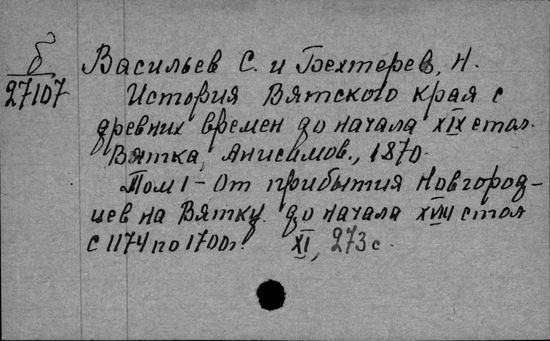 б
27107
Васильев С. и Бехтерев, Н.
История Вятского края с
древних времен до начала XIX стол.
Вятка, Анисимов., 1870.
Том I – От прибытия Новгород-
цев на Вятку до начала XVIII стол
с 1174 по 1700г. XI, 273 с.